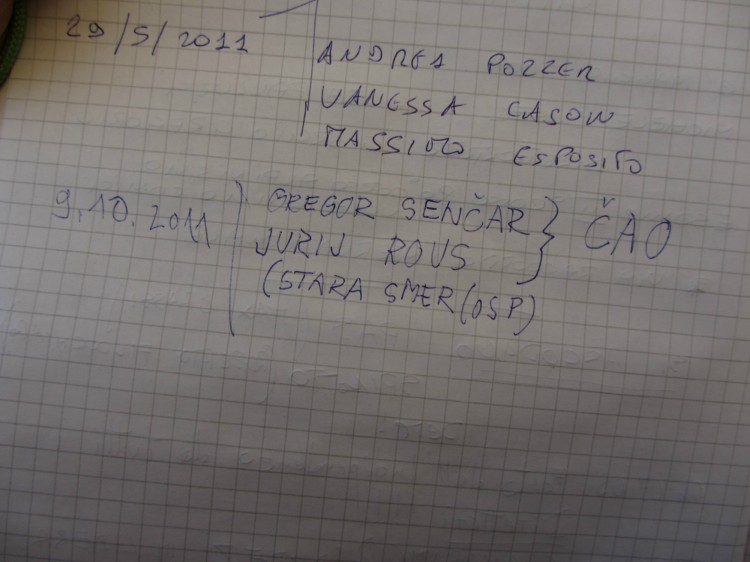 29/5/2011 ANDREA POZZER
VANESSA CASON
MASSIMO ESPOSITO
9.10.2011 GREGOR SENČAR } ČAO
JURIJ ROUS
(STARA SMER (OSP)